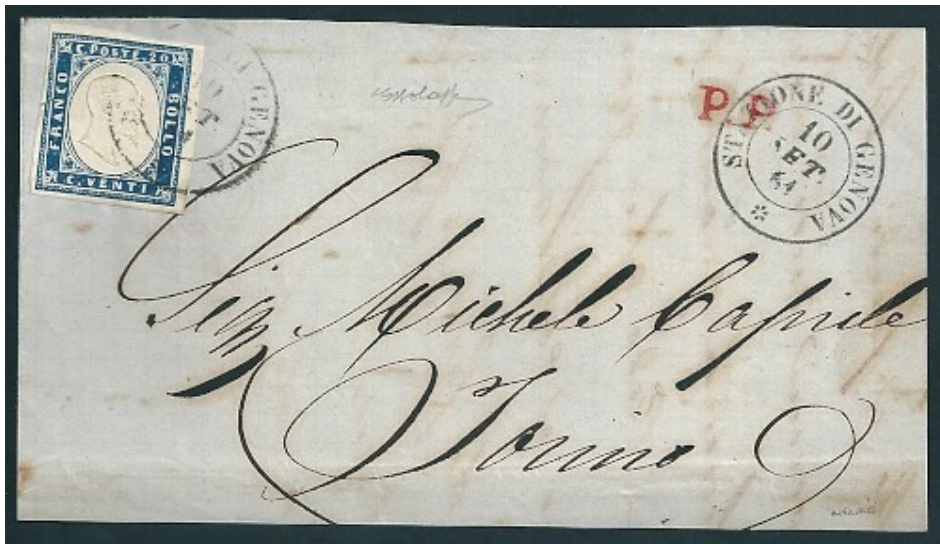 C. POSTE. 20
FRANCO
BOLLO
C. VENTI
DI GENOVA
P. P.
STAZIONE DI GENOVA
10
SET.
61
Sig. Michele Caprile
Torino